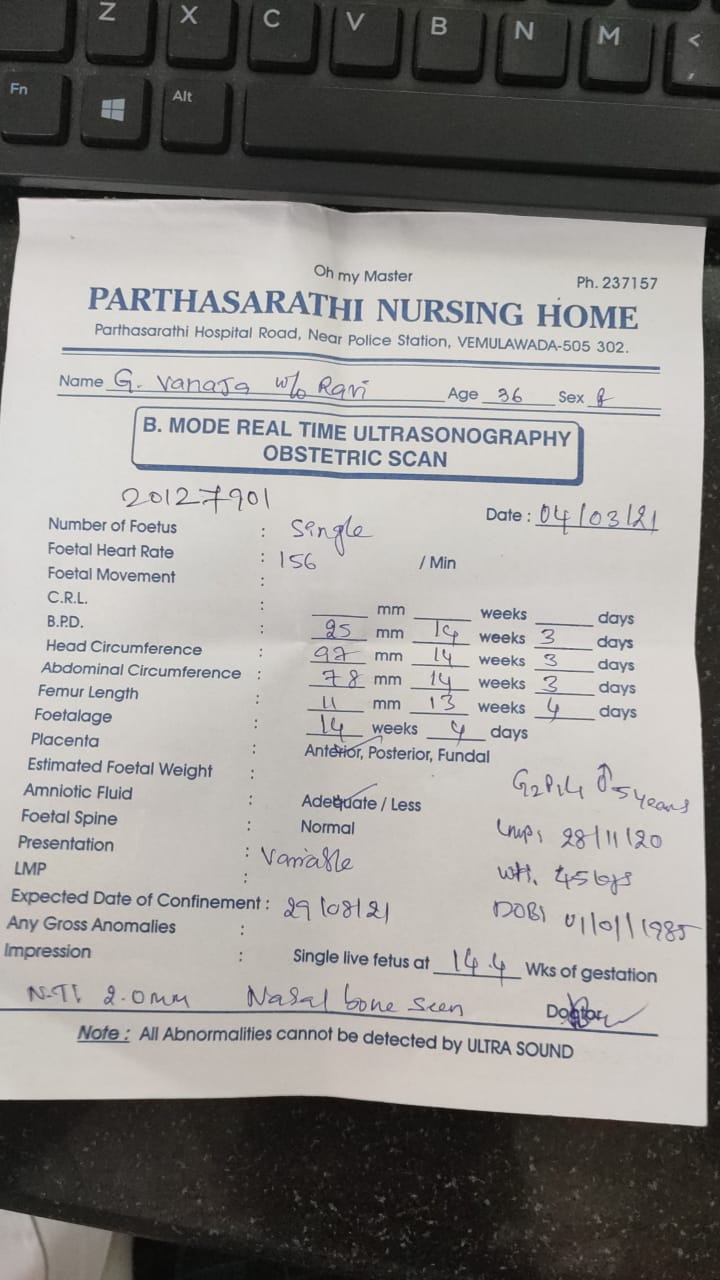 Z X C V B N M <
,
Fn Alt
Oh my Master
Ph. 237157
PARTHASARATHI NURSING HOME
Parthasarathi Hospital Road, Near Police Station, VEMULAWADA-505 302.
Name G. Vanaja w/o Ravi Age 36 Sex f
B. MODE REAL TIME ULTRASONOGRAPHY
OBSTETRIC SCAN
20127901
Date : 04/03/21
Number of Foetus : Single
Foetal Heart Rate : 156 / Min
Foetal Movement :
C.R.L. : mm weeks days
B.P.D. : 25 mm 14 weeks 3 days
Head Circumference : 97 mm 14 weeks 3 days
Abdominal Circumference : 78 mm 14 weeks 3 days
Femur Length : 11 mm 13 weeks 4 days
Foetalage : 14 weeks 4 days
Placenta : Anterior, Posterior, Fundal
Estimated Foetal Weight :
G2P1L1 5 years
Amniotic Fluid : Adequate / Less
Foetal Spine : Normal
LMP: 28/11/20
Presentation : Variable
LMP :
Wt. 45 kgs
Expected Date of Confinement : 29/08/21
DOB: 01/01/1985
Any Gross Anomalies :
Impression : Single live fetus at 14.4 Wks of gestation
N.T: 2.0mm Nasal bone seen Doctor
Note : All Abnormalities cannot be detected by ULTRA SOUND